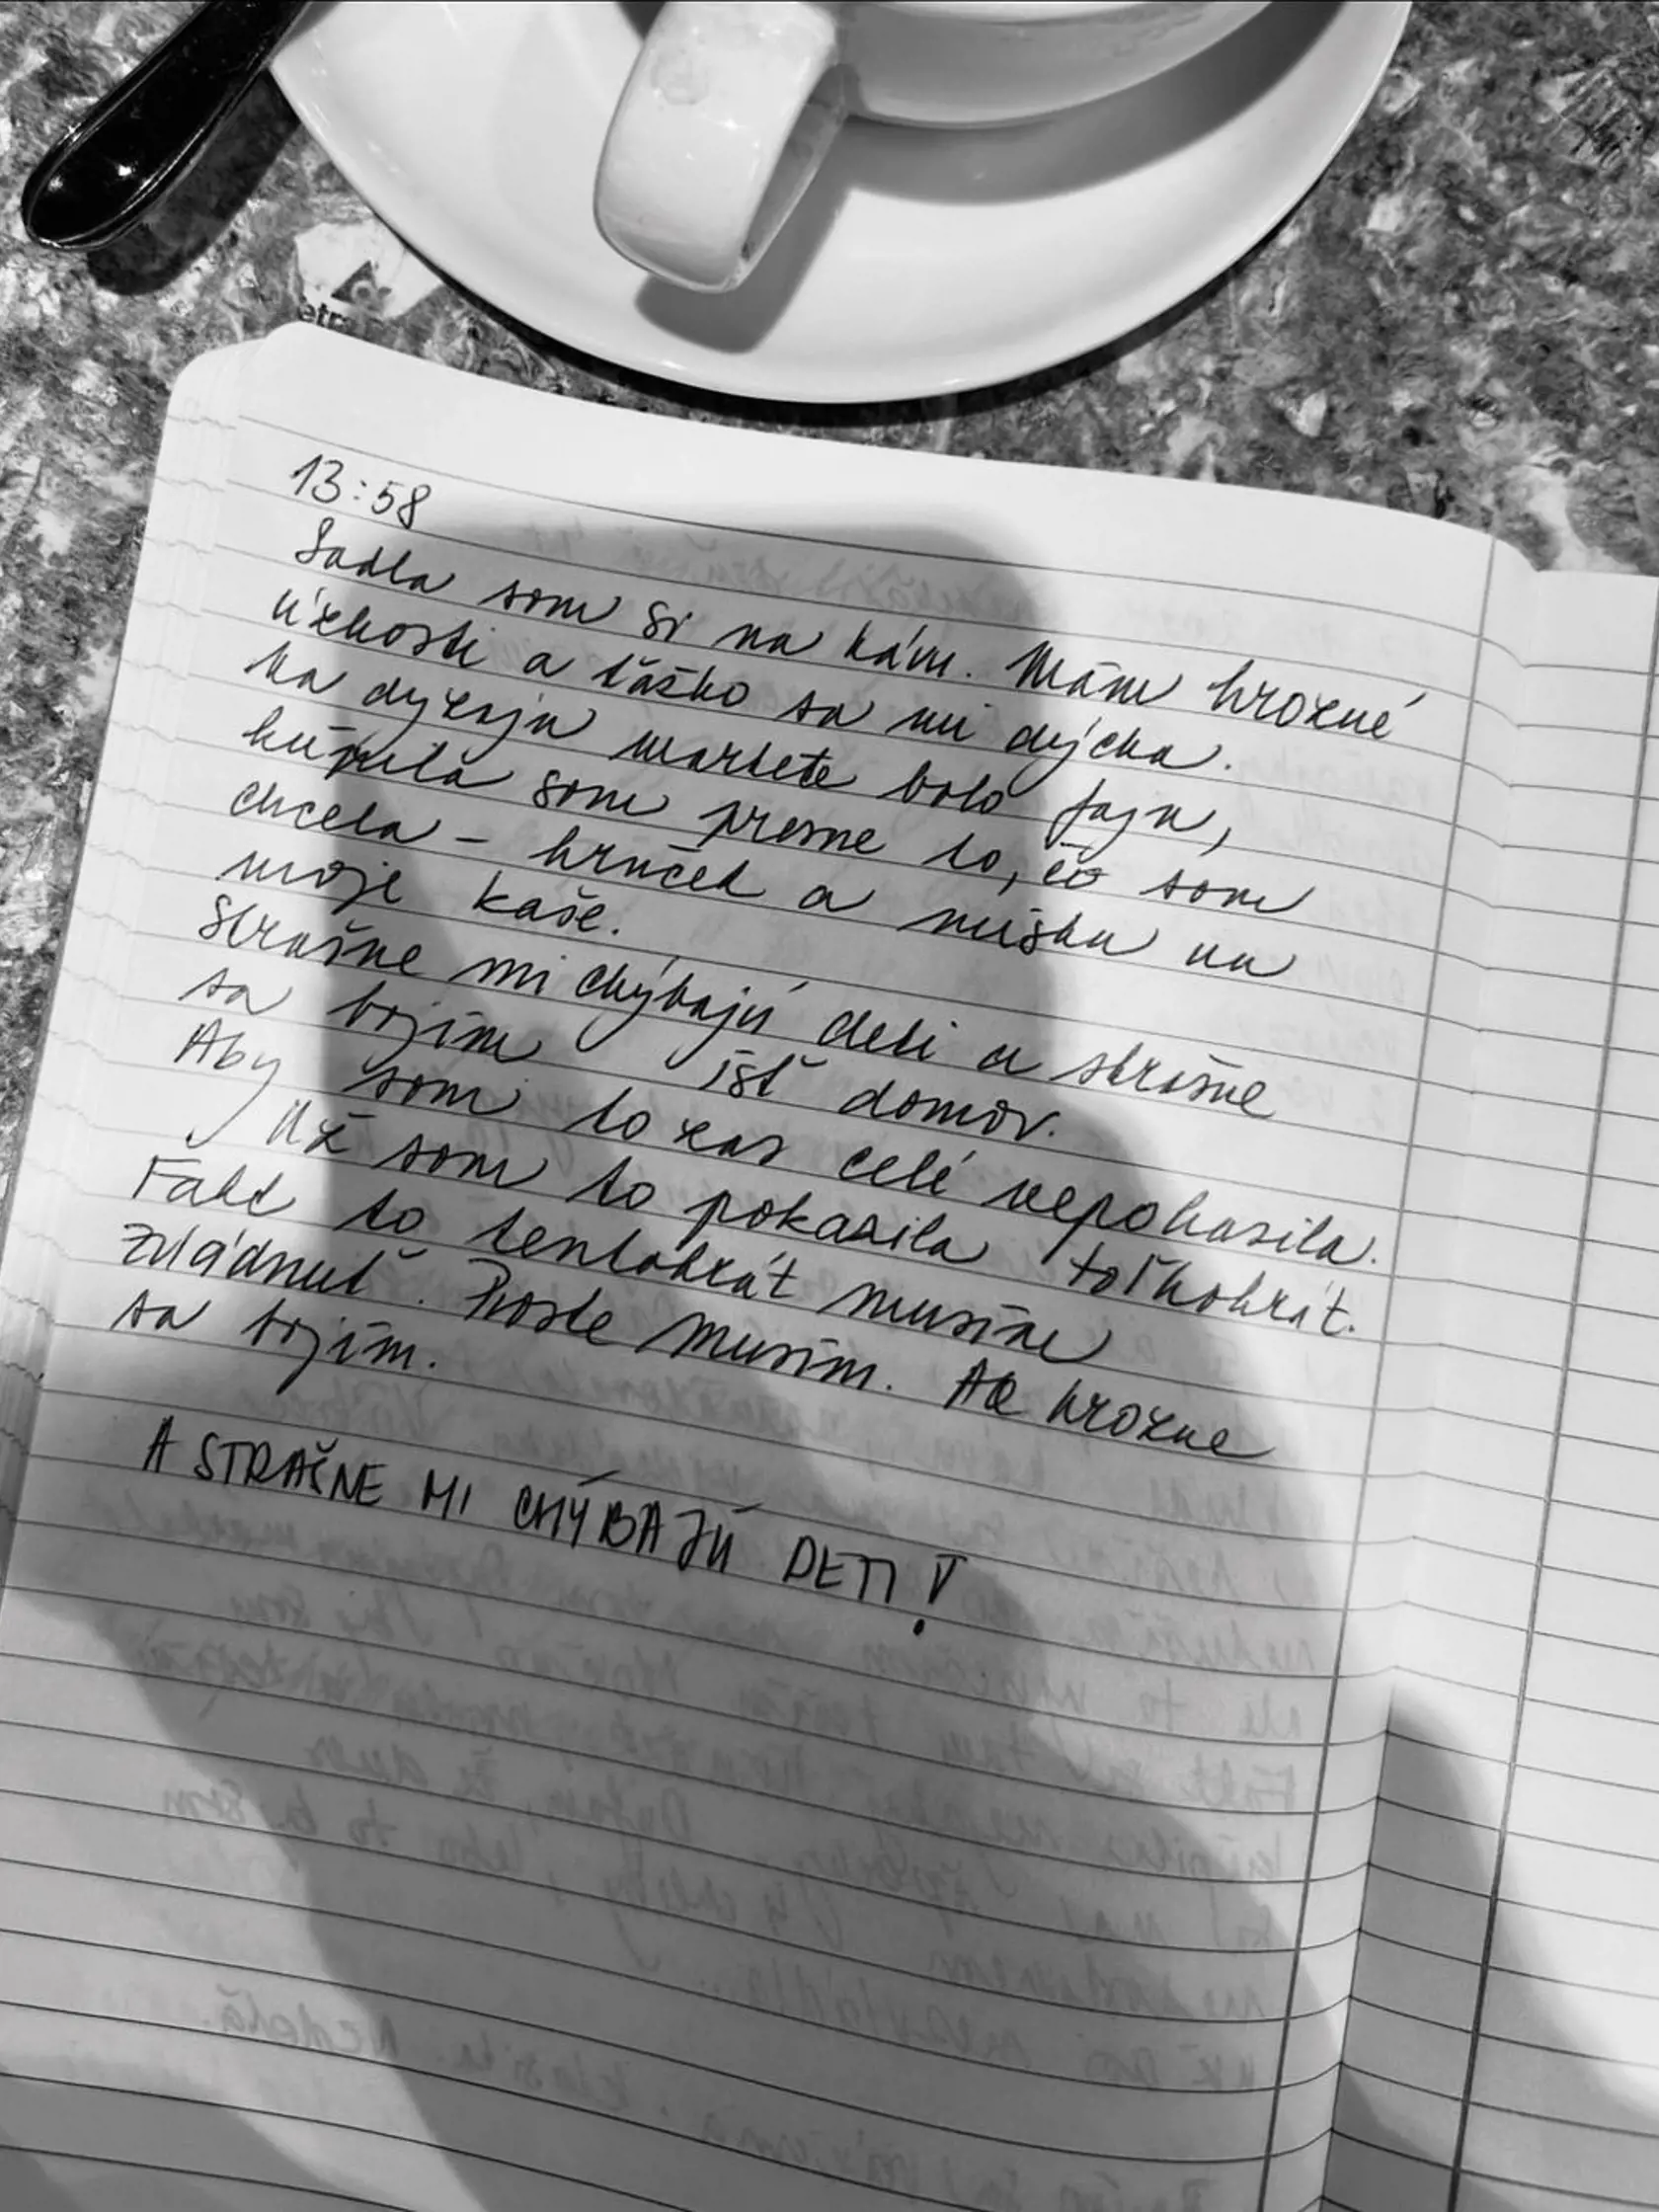 etr
13:58
Sadla som si na kávu. Mám hrozné
úzkosti a ťažko sa mi dýcha.
Na dyzajn markete bolo fajn,
kúpila som presne to, čo som
chcela - hrnček a misku na
moje kaše.
Strašne mi chýbajú deti a strašne
sa bojím ísť domov.
Aby som to zas celé nepokasila.
Už som to pokasila toľkokrát.
Fakt to tentokrát musím
zvládnuť. Proste musím. Ale hrozne
sa bojím.
A STRAŠNE MI CHÝBAJÚ DETI!